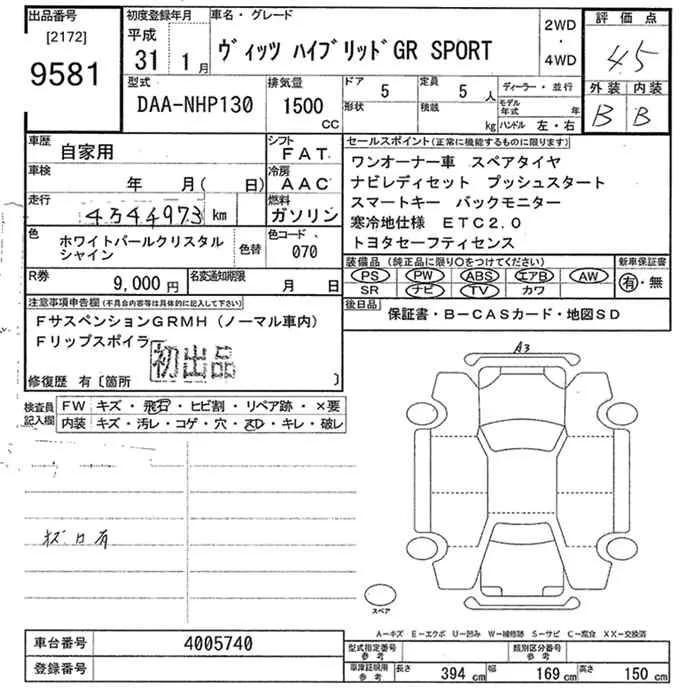 出品番号
[2172]
9581
初度登録年月
平成
31 1月
車名・グレード
ヴィッツ ハイブリッドGR SPORT
2WD
・
4WD
評価点
4.5
外装 内装
B B
型式
DAA-NHP130
排気量
1500
CC
ドア 5
形状
定員 5 人
積載 kg
ディーラー・並行
モデル年式 年
ハンドル 左・右
車歴
自家用
シフト
FAT
車検
年 月( 日)
冷房
AAC
走行
km
燃料
ガソリン
色
ホワイトパールクリスタル
シャイン
色替
色コード
070
R券
9,000円
名変通知期限
月 日
セールスポイント(正常に機能するものに限ります)
ワンオーナー車 スペアタイヤ
ナビレディセット プッシュスタート
スマートキー バックモニター
寒冷地仕様 ETC2.0
トヨタセーフティセンス
装備品(純正品に限り○をつけてください)
PS PW ABS エアB AW
SR ナビ TV カワ
新車保証書
有・無
後日品
保証書・B-CASカード・地図SD
注意事項申告欄(不具合内容等は具体的に記入して下さい)
FサスペンションGRMH(ノーマル車内)
Fリップスポイラ
初出品
修復歴 有〔箇所 〕
検査員
記入欄
FW キズ・飛石・ヒビ割・リペア跡・×要
内装 キズ・汚レ・コゲ・穴・スレ・キレ・破レ
A3
スペア
A-キズ E-エクボ U-凹み W-補修跡 S-サビ C-腐食 XX-交換済
車台番号 4005740
登録番号
型式指定番号
参考
類別区分番号
参考
車庫証明用
参考
長さ 394 cm 幅 169 cm 高さ 150 cm